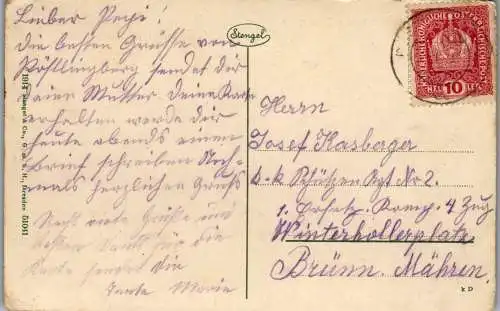 Lieber Pepi!
Die besten Grüsse von
Pöstlingberg sendet dir
deine Mutter deine Karte
erhalten werde dir
heute abends einen
Brief schreiben Noch-
mals herzlichen Gruss
Recht viele Grüße und
besten Dank für die
Karte sendet die
Tante Marie
Stengel
1914 Stengel & Co., G. m. b. H., Dresden 51041
10
Herrn
Josef Hasberger
k.k. Schützen Rgt Nr 2.
1. Ersatz. Komp. 4 Zug
Winterhollerplatz
Brünn. Mähren.
K D